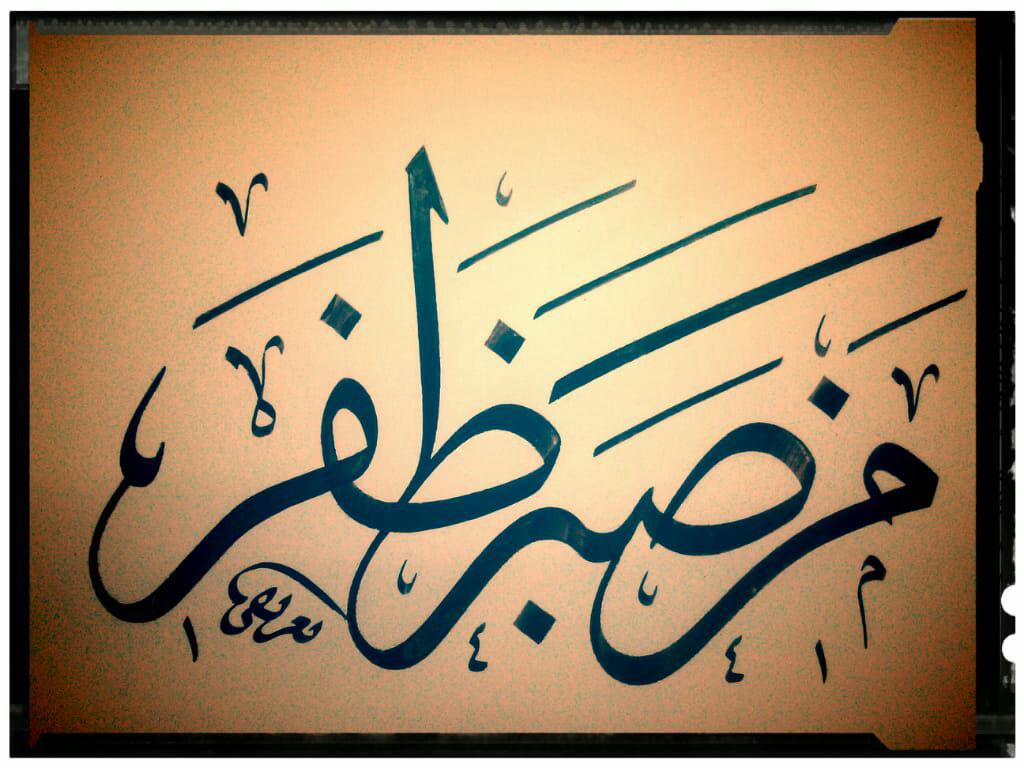 من صبر ظفر